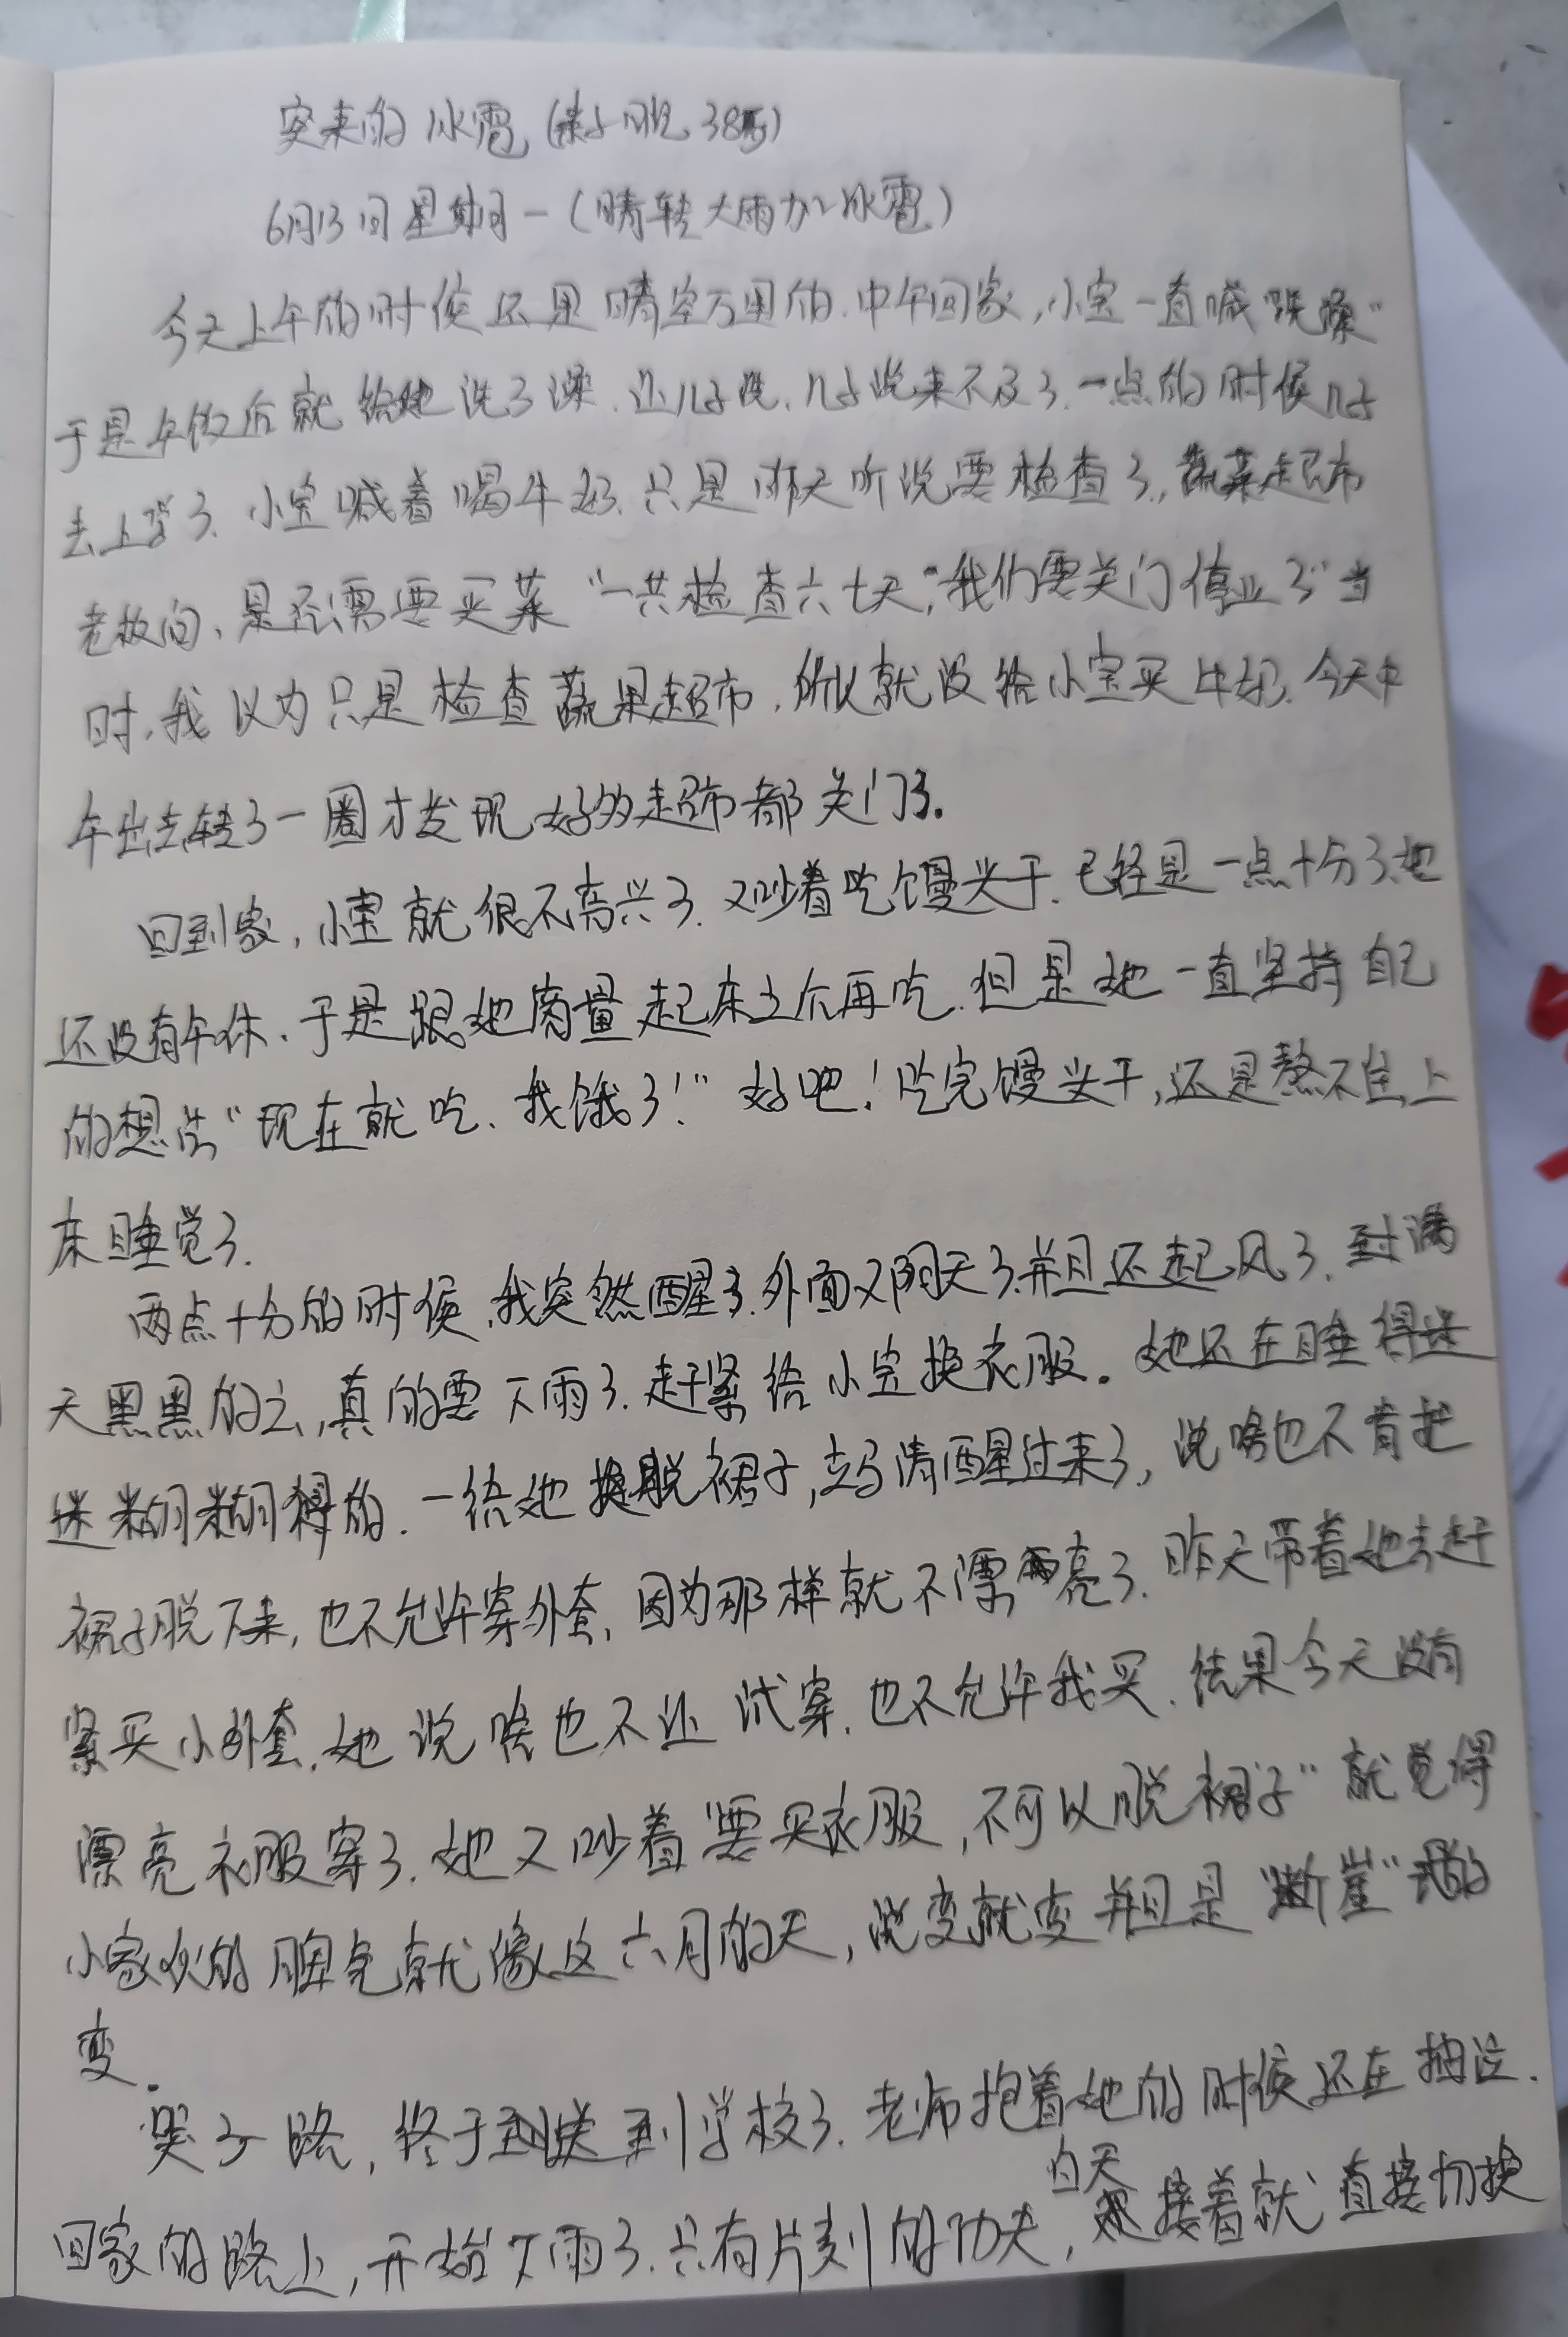 突来的冰雹(亲子日记38篇)
6月13日星期一(晴转大雨加冰雹)
今天上午的时候还是晴空万里的.中午回家,小宝一直喊"洗澡"
于是午饭后就给她洗了澡.让儿子洗,儿子说来不及了.一点的时候儿子
去上学了.小宝喊着喝牛奶.只是昨天听说要检查了,蔬菜超市
老板问、是否需要买菜"一共检查六七天,我们要关门停业了"当
时,我以为只是检查蔬果超市,所以就没给小宝买牛奶.今天中
午出去转了一圈才发现好多超市都关门了.
回到家,小宝就很不高兴了.又吵着吃馒头干.已经是一点十分了,她
还没有午休.于是跟她商量起床之后再吃.但是她一直坚持自己
的想法"现在就吃、我饿了!"好吧!吃完馒头干,还是熬不住上
床睡觉了.
两点十分的时候,我突然醒了.外面又阴天了.并且还起风了.满
天黑黑的云,真的要下雨了.赶紧给小宝换衣服.她还在睡得迷
迷糊糊的.一给她脱裙子,立马清醒过来了,说啥也不肯把
裙子脱下来,也不允许穿外套,因为那样就不漂亮了.昨天带着她去赶
紧买小外套,她说啥也不让试穿.也不允许我买.结果今天没有
漂亮衣服穿了.她又吵着"要买衣服,不可以脱裙子"就觉得
小家伙的脾气就像这六月的天,说变就变并且是"断崖"式的
变.
哭了一路,终于送到学校了.老师抱着她的时候还在抽泣.
回家的路上,开始下雨了.只有片刻的功夫,白天接着就直接切换